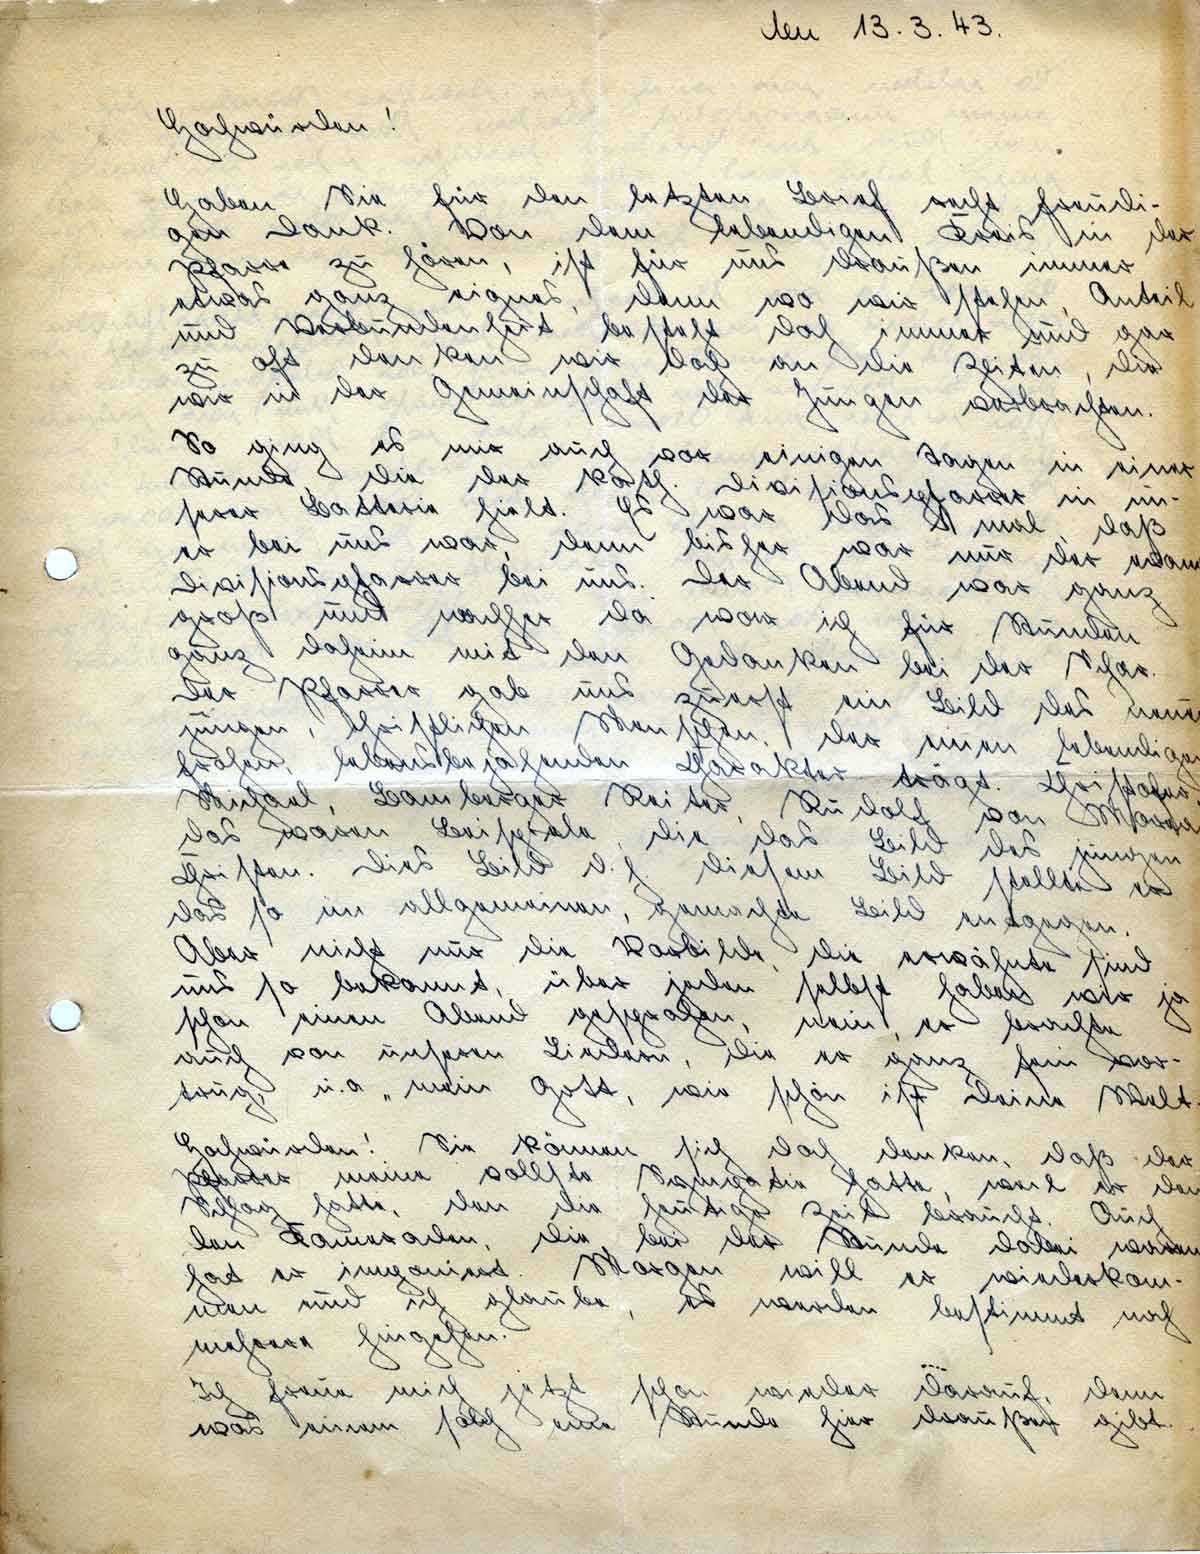 den 13.3.43.
Hochwürden!
Haben Sie für den letzten Brief recht freudi-
gen Dank. Von dem lebendigen Kreis in der
Pfarre zu hören, ist für uns draußen immer
etwas ganz eignes, denn wo wir stehen, Anteil
und Verbundenheit besteht doch immer und gar
zu oft denken wir doch an die Zeiten, die
wir in der Gemeinschaft der Jungen verbrachten.
So ging es mir auch vor einigen Tagen in einer
Stunde, die der kath. Divisionspfarrer in un-
serer Batterie hielt. Es war das 1. mal, daß
er bei uns war, denn bisher war nur der evang
Divisionspfarrer bei uns. Der Abend war ganz
groß und nachher da war ich für Stunden
ganz daheim mit den Gedanken bei der Schar.
Der Pfarrer gab uns zuerst ein Bild des neuen
jungen, christlichen Menschen, der einen lebendigen
frohen, lebensbejahenden Charakter trägt. Christofer,
Michael, Bamberger Reiter, Rudolf von
das waren Beispiele, die das Bild des jungen
Christen. Dies Bild d.h. diesem Bild stellte er
das so im allgemeinen, gemachte Bild entgegen.
Aber nicht nur die Vorbilde, die erwähnte sind
uns so bekannt, über jeden selbst haben wir ja
schon einen Abend gesprochen, nein, er brachte
auch von unseren Liedern, die er ganz fein vor-
trug, u.a „mein Gott, wie schön ist Deine Welt.
Hochwürden! Sie können sich doch denken, daß der
Pfarrer meine vollste Sympatie hatte, weil er den
Schlag hatte, den die heutige Zeit braucht. Auch
den Kameraden, die bei der Stunde dabei waren
hat er imponiert. Morgen will er wiederkom-
men und ich glaube, es werden bestimmt noch
mehrere hingehen.
Ich freue mich jetzt schon wieder darauf, denn
was einem solch eine Stunde hier draußen gibt.